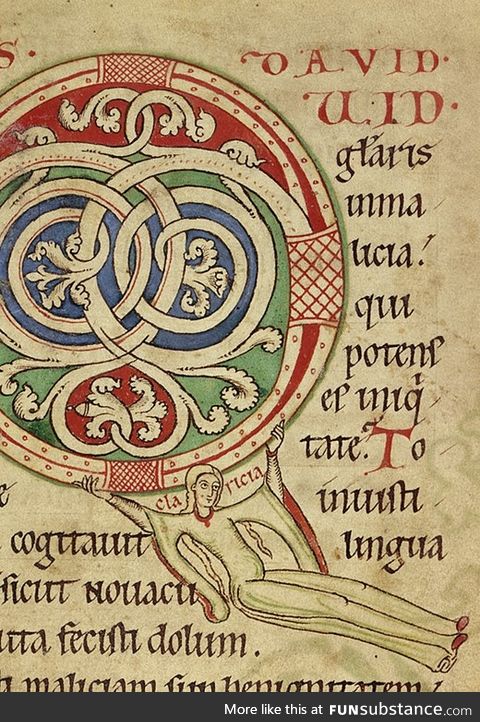 S. DAVID.
UID.
gl̃aris
inma
licia.
qui
potens
es iniq̃
tate. To
inuisti
cogitauit lingua
sicut nouacu
fecisti dolum.
maliciam sup benignitatem
cla ricia
More like this at FUNsubstance.com